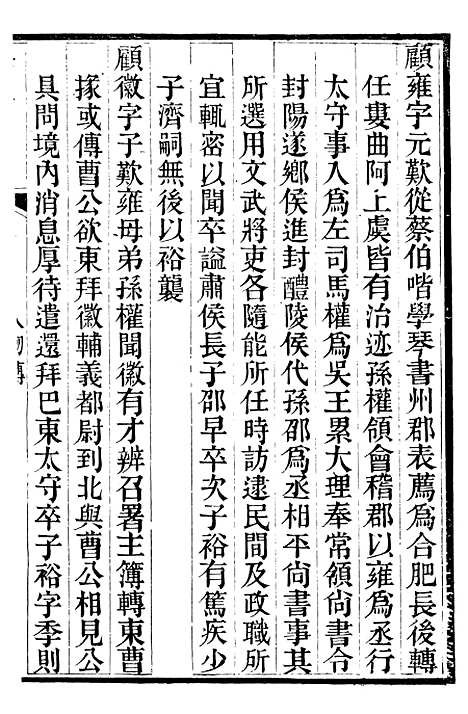 顧雍字元歎從蔡伯喈學琴書州郡表薦爲合肥長後轉
任婁曲阿上虞皆有治迹孫權領會稽郡以雍爲丞行
太守事入爲左司馬權爲吳王累大理奉常領尙書令
封陽遂鄕侯進封醴陵侯代孫邵爲丞相平尙書事其
所選用文武將吏各隨能所任時訪逮民間及政職所
宜輒密以聞卒謚肅侯長子邵早卒次子裕有篤疾少
子濟嗣無後以裕襲
顧徽字子歎雍母弟孫權聞徽有才辨召署主簿轉東曹
掾或傳曹公欲東拜徽輔義都尉到北與曹公相見公
具問境內消息厚待遣還拜巴東太守卒子裕字季則
人物傳